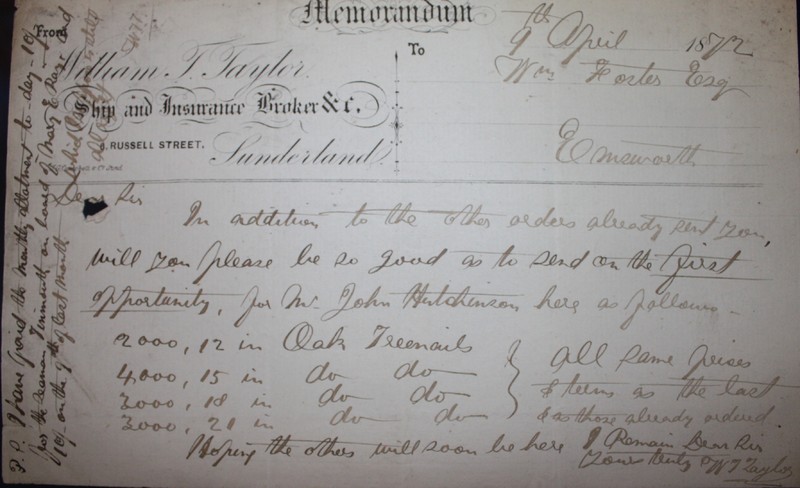 Memorandum
From
William T. Taylor.
Ship and Insurance Broker &c.
RUSSELL STREET,
Sunderland
To
9th April 1872
Wm Foster Esq
Emsworth
Dear Sir
In addition to the other orders already sent you,
will you please be so good as to send on the first
opportunity, for Mr John Hutchinson here as follows -
2000, 12 in Oak Treenails
4000, 15 in do do
3000, 18 in do do
3000, 21 in do do
all same prices
& terms as the last
& as those already ordered.
Hoping the others will soon be here I Remain Dear Sir
Yours truly WT Taylor
P.S. I have paid the monthly allotment to day - 10/
for the seaman on board Mary E Rage and
10/ on the 9th of last month